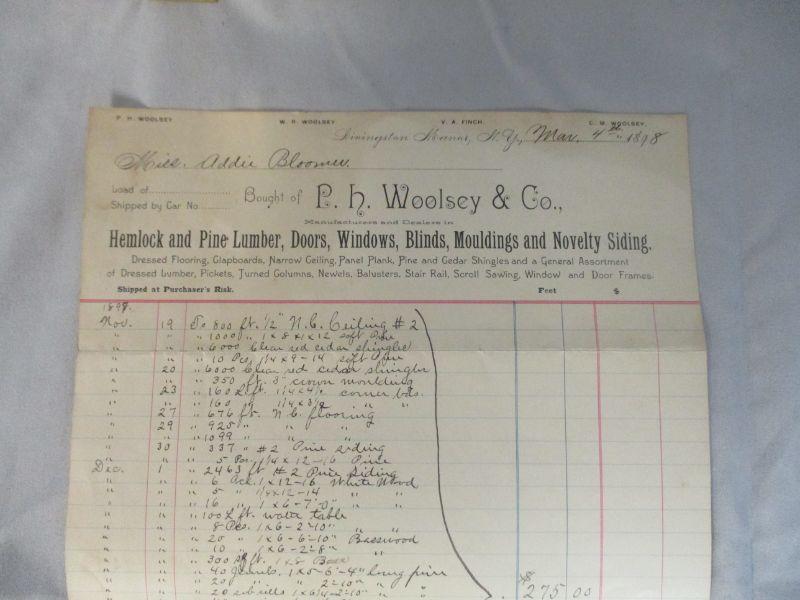 P. H. WOOLSEY W. R. WOOLSEY V. A. FINCH. C. M. WOOLSEY.
Livingston Manor, N. Y., Mar. 4th 1898
Miss. Addie Bloomer.
Load of
Shipped by Car No.
Bought of P. H. Woolsey & Co.,
Manufacturers and Dealers in
Hemlock and Pine Lumber, Doors, Windows, Blinds, Mouldings and Novelty Siding.
Dressed Flooring, Clapboards, Narrow Ceiling, Panel Plank, Pine and Cedar Shingles and a General Assortment
of Dressed Lumber, Pickets, Turned Columns, Newels, Balusters, Stair Rail, Scroll Sawing, Window and Door Frames.
Shipped at Purchaser's Risk. Feet $
1897.
Nov. 19 To 800 ft. 1/2" N.C. Ceiling # 2
" " " 1000 " 1 x 8 x 1 x 12 soft Pine
" " " 6000 Clear red cedar shingles
" " " 10 Pcs. 1 1/4 x 9 - 14 soft Pine
" 20 " 6000 Clear red cedar shingles
" " " 350 ft. 3" crown moulding
" 23 " 160 L ft. 1 1/4 x 4 1/2 corner bds.
" " " 160 " 1 1/4 x 3 1/2 " "
" 27 " 676 ft. N.C. flooring
" 29 " 925 " " "
" " " 1099 " " "
" 30 " 337 " #2 Pine siding
" " " 5 Pcs. 1 1/4 x 12 - 16 Pine
Dec. 1 " 2463 ft #2 Pine Siding
" " " 6 Pcs. 1 x 12 - 16 White Wood
" " " 5 " 1/4 x 12 - 14 " "
" " " 16 " 1 x 6 - 7'0" " "
" " " 100 L ft. water table
" " " 8 Pcs. 1 x 6 - 2'-10" " "
" " " 20 " 1 x 6 - 6'-10" Basswood
" " " 10 " 1 x 6 - 2'-8" "
" " " 300 ft. 1 x 8 Bass
" " " 40 1 x 5 - 6'-4" long pine
" " " 20 " " 2'-10" " "
" " " 20 sub sills 1 x 6 1/4 - 2'-10" " " 275 00